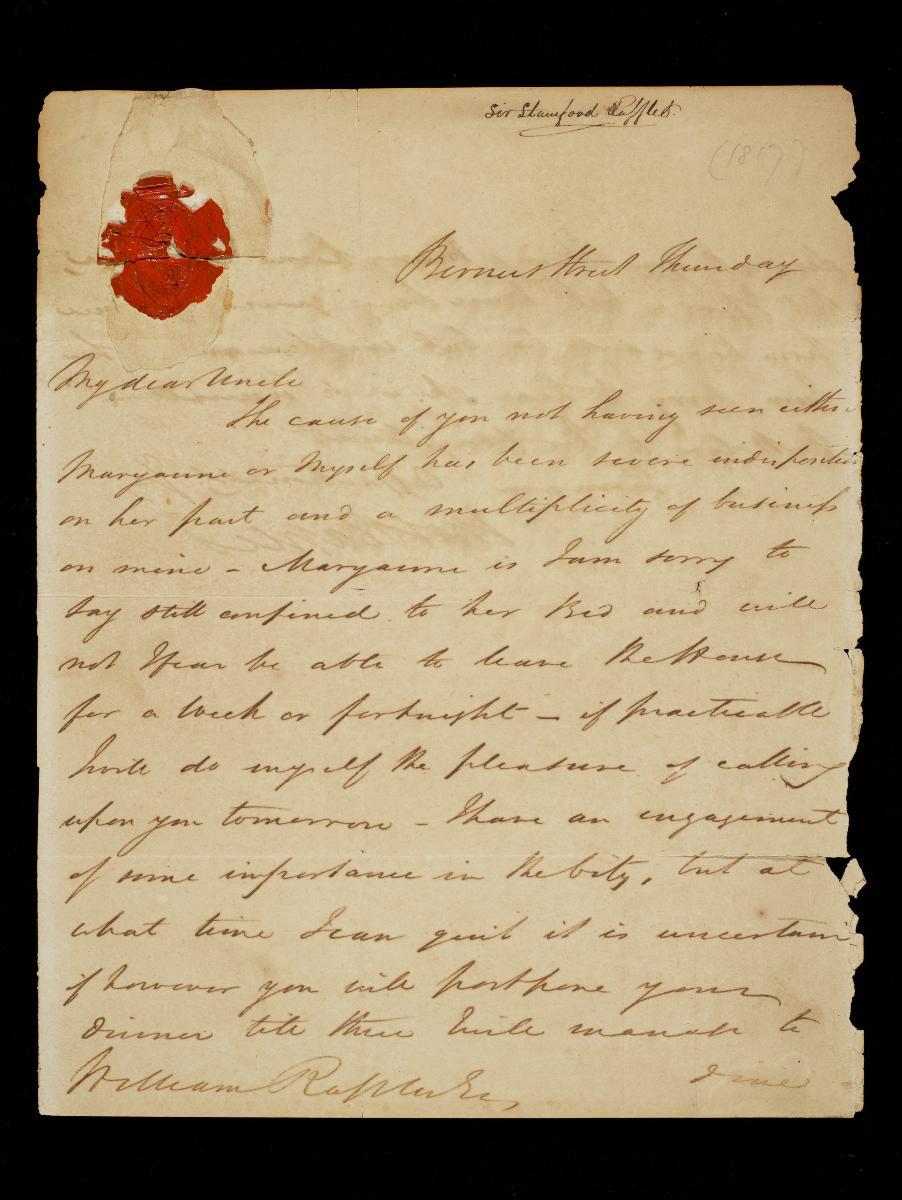 Sir Stamford Raffles.
(1817)
Berners Street Thursday
My dear Uncle
The cause of you not having seen either
Maryanne or Myself has been severe indisposition
on her part and a multiplicity of business
on mine - Maryanne is I am sorry to
say still confined to her Bed and will
not I fear be able to leave the House
for a Week or fortnight - if practicable
I will do myself the pleasure of calling
upon you tomorrow - I have an engagement
of some importance in the City, but at
what time I can quit it is uncertain
if however you will postpone your
dinner till three I will manage to
dine
William Raffles Esq,